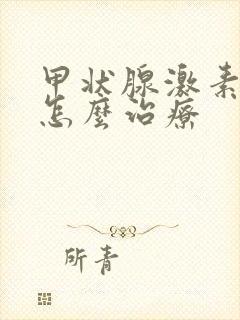 甲状腺激素
怎麼治療
所青